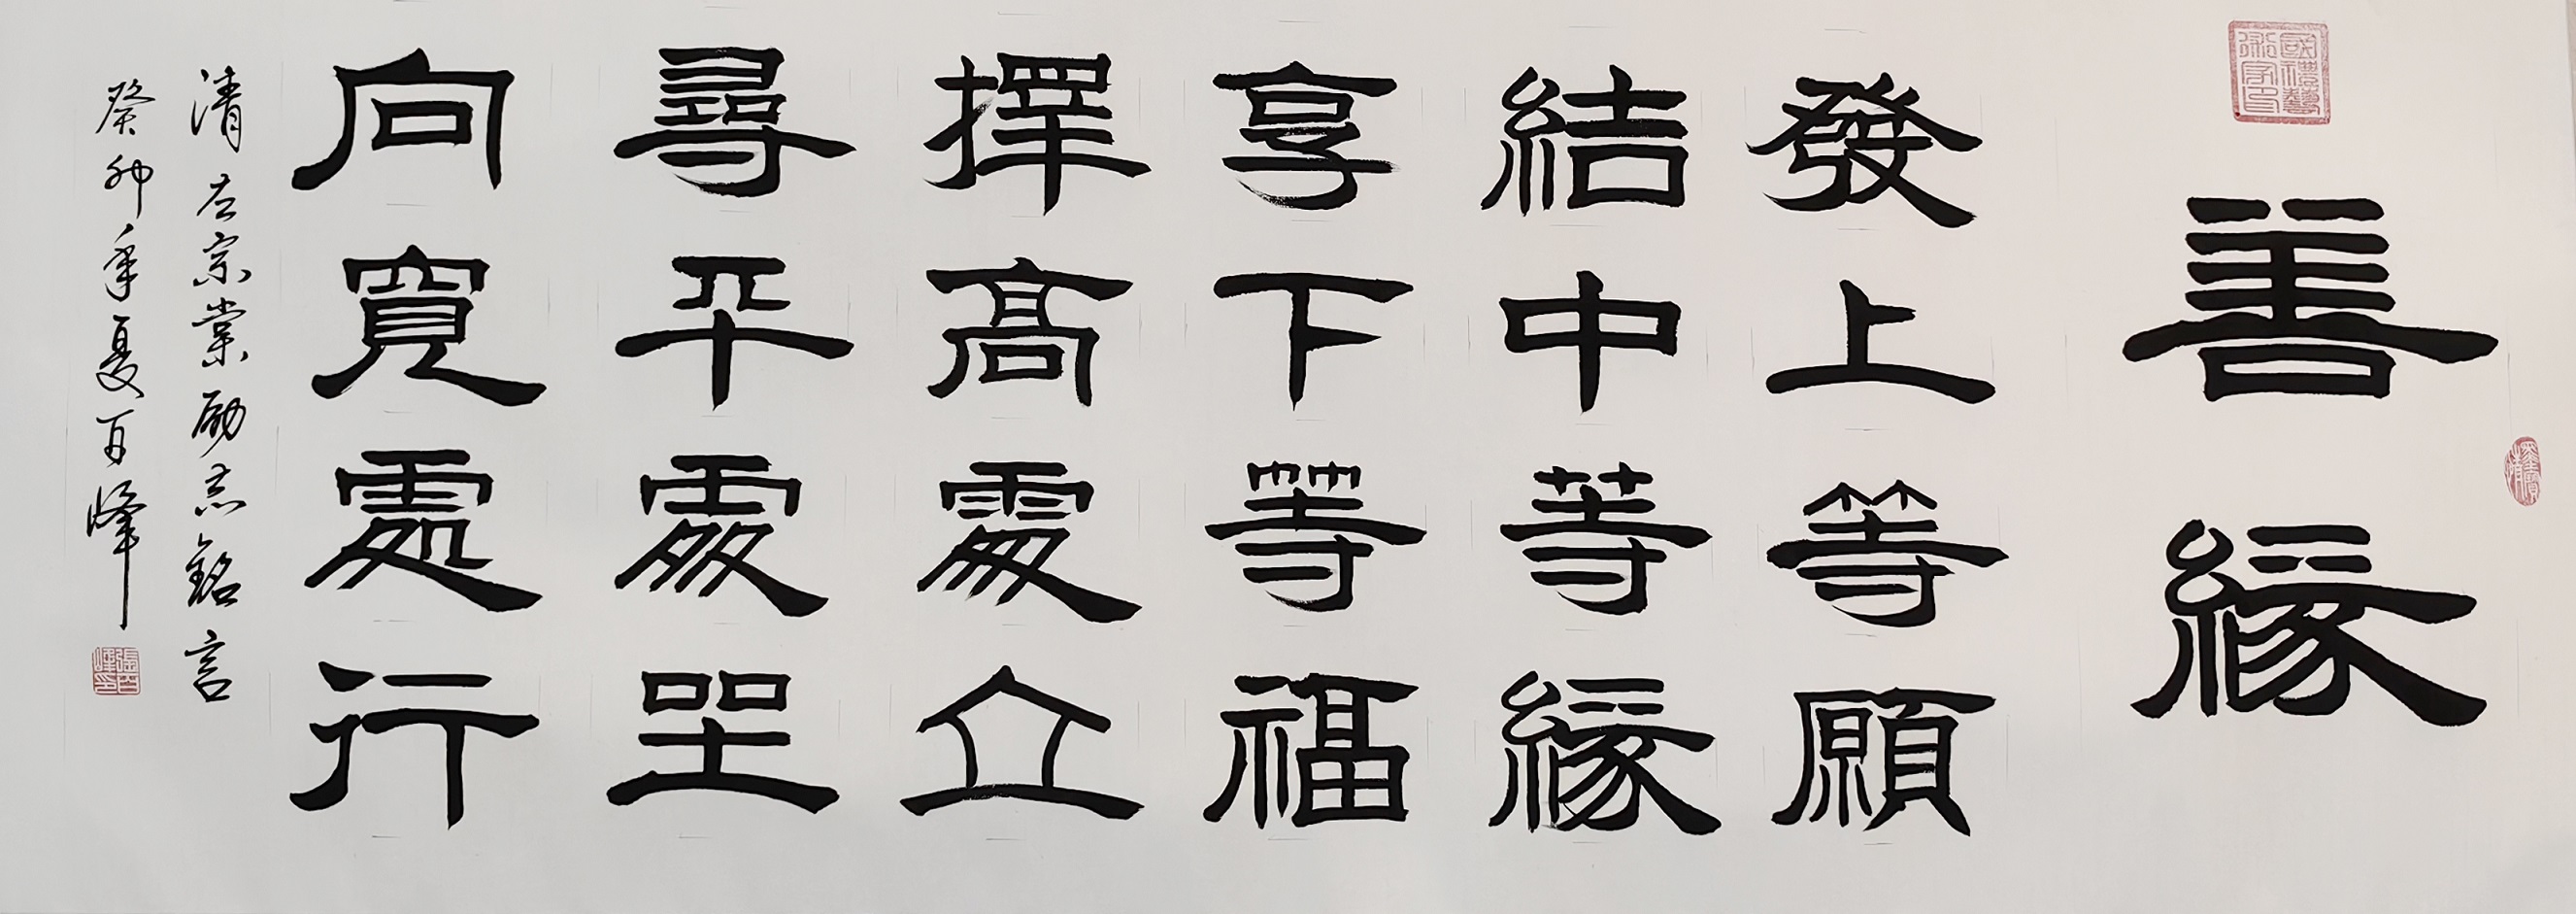 善緣
發上等願
結中等緣
享下等福
擇高處立
尋平處坐
向寬處行
清左宗棠勵志銘言
癸卯年夏百峰
國禮藝術家印
張百峰印